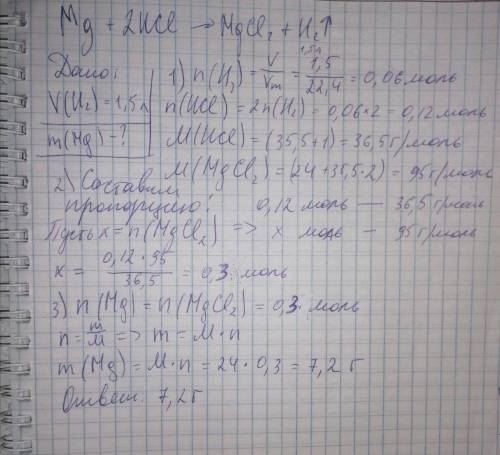 Mg + 2HCl → MgCl₂ + H₂↑
1,5л
Дано:
V(H₂) = 1,5 л
m(Mg) = ?
1) n(H₂) = V/Vm = 1,5/22,4 = 0,06 моль
n(HCl) = 2n(H₂) = 0,06·2 = 0,12 моль
M(HCl) = (35,5+1) = 36,5 г/моль
M(MgCl₂) = (24+35,5·2) = 95 г/моль
2) Составим
пропорцию: 0,12 моль — 36,5 г/моль
Пусть x = n(MgCl₂) => x моль — 95 г/моль
x = 0,12·95/36,5 = 0,3 моль
3) n(Mg) = n(MgCl₂) = 0,3 моль
n = m/M => m = M·n
m(Mg) = M·n = 24·0,3 = 7,2 г
Ответ: 7,2 г